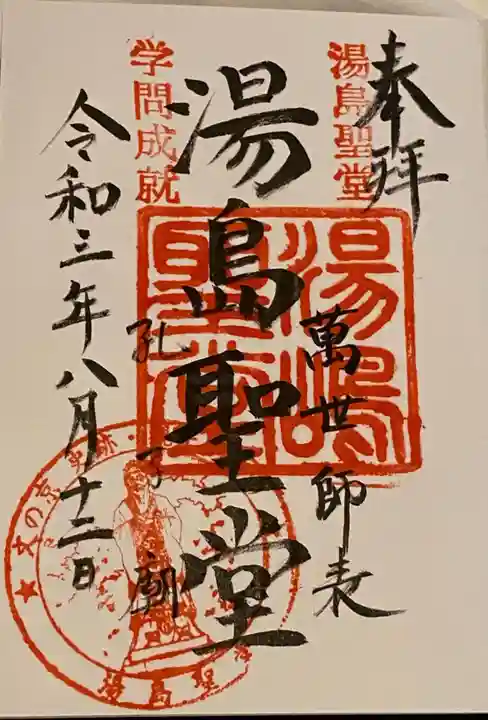 奉拝
湯島聖堂
萬世師表
湯島聖堂
湯島聖堂
学問成就
孔子廟
令和三年八月十二日
★文の京 史跡
湯島聖堂